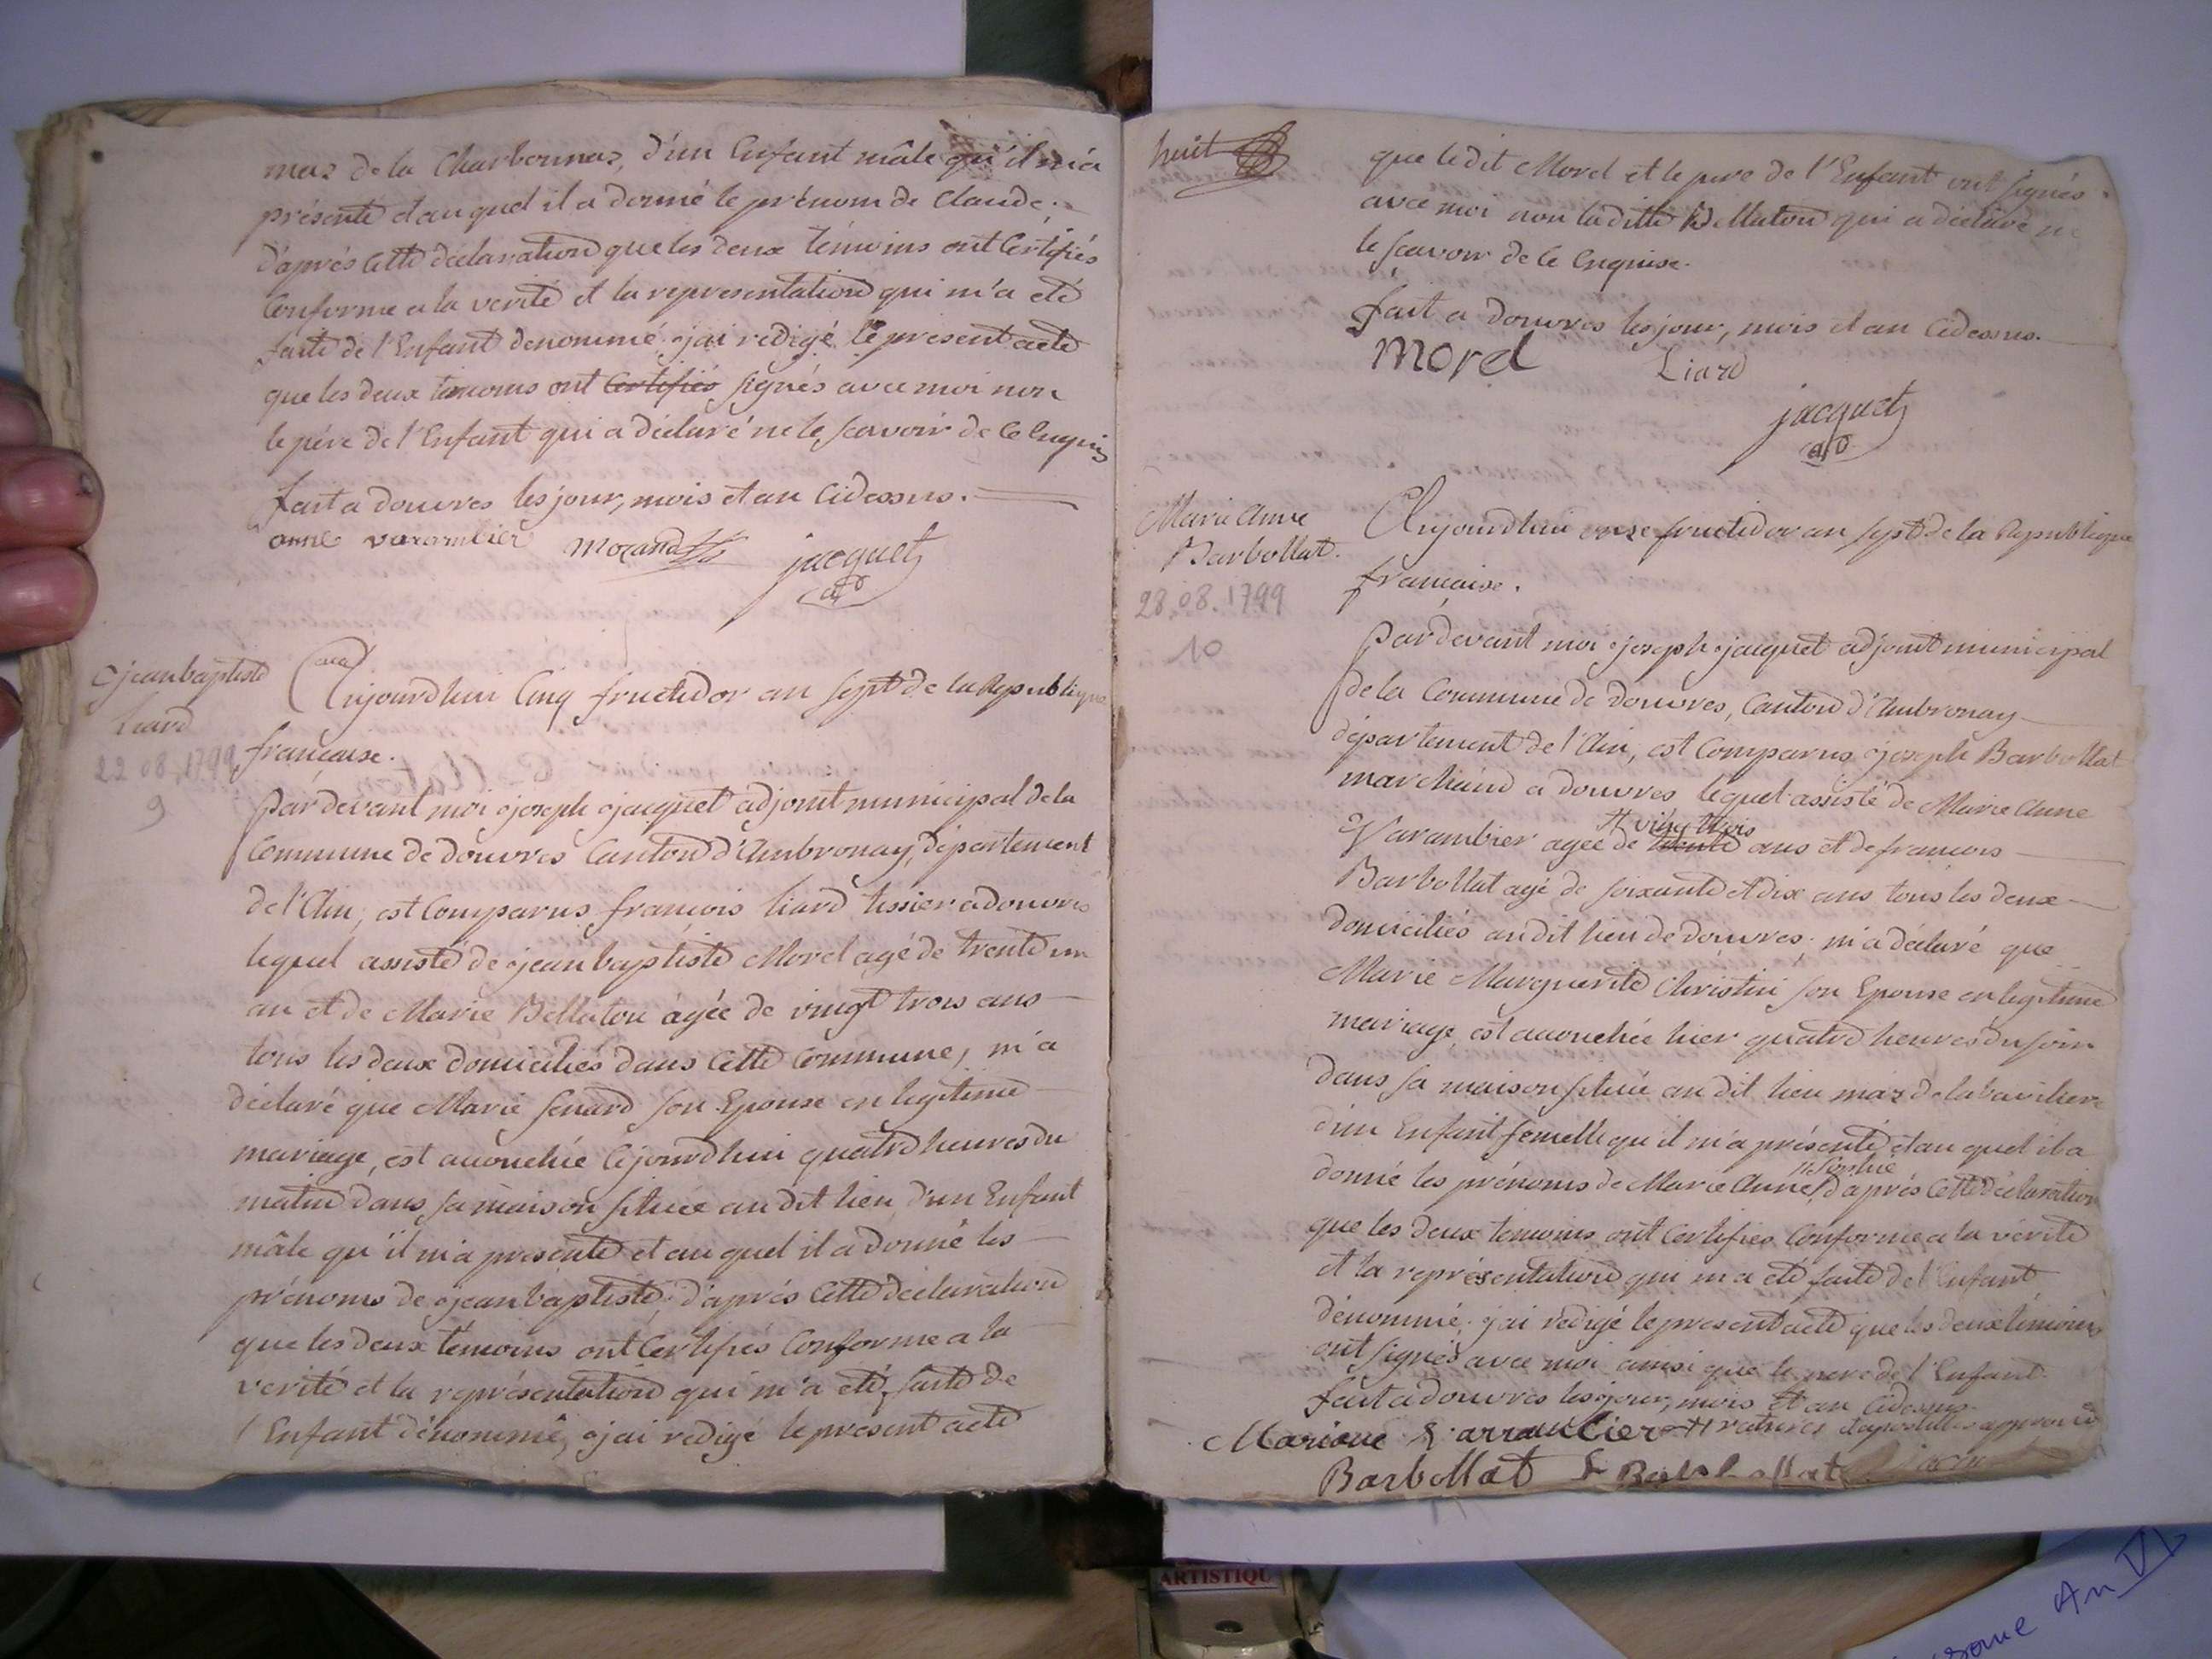 mas de la Charbonnas, d'un Enfant mâle qu'il m'a
présenté et au quel il a donné le prénom de Claude;
d'après cette déclaration que les deux témoins ont Certifiés
Conforme a la verité et la representation qui m'a eté
faite de l'Enfant denommé j'ai redigé le present acte
que les deux temoins ont Certifiés signés avec moi non
le père de l'Enfant qui a déclaré ne le sçavoir de ce Enquis
fait a douvres les jour, mois et an Cidessus.
anne varambier morand jacquet
ad
jean baptiste
Liard
22 08.1799
9
Aujourdhui Cinq fructidor an sept de la Republique
française.
par devant moi joseph jacquet adjoint municipal de la
Commune de douvres Canton d'Ambronay, département
de l'Ain, est Comparus françois liard tissier a douvres
lequel assisté de jean baptiste Morel agé de trente un
an et de Marie Bellaton agée de vingt trois ans
tous les deux domiciliés dans Cette Commune, m'a
déclaré que Marie Senard son Epouse en legitime
mariage, est acouchée Cejourdhui quatre heures du
matin dans sa maison située au dit lieu d'un Enfant
mâle qu'il m'a presenté et au quel il a donné les
prénoms de jean baptiste; d'après Cette déclaration
que les deux témoins ont Certifiés Conforme a la
verité et la représentation qui m'a eté faite de
l'Enfant dénommé, j'ai redigé le présent acte
huit
que ledit Morel et le pere de l'Enfant ont signés
avec moi non la ditte Bellaton qui a déclaré ne
le sçavoir de ce Enquise.
fait a douvres les jour, mois et an Cidessus.
morel Liard
jacquet
ad
Marie Anne
Barbollat.
28.08.1799
10
Aujourdhui onze fructidor an sept de la Republique
française.
par devant moi joseph jacquet adjoint municipal
de la Commune de douvres, Canton d'Ambronay
département de l'Ain, est Comparus joseph Barbollat
marchand a douvres lequel assisté de Marie Anne
# vingt trois
Varambier agée de trente ans et de francois
Barbollat agé de soixante et dix ans tous les deux
domiciliés au dit lieu de douvres; m'a déclaré que
Marie Marguerite Christin son Epouse en legitime
mariage, est acouchée hier quatre heures du soir
dans sa maison située au dit lieu mas de la
d'un Enfant femelle qu'il m'a présenté et au quel il a
# Sophie
donné les prénoms de Marie Anne # d'après Cette déclaration
que les deux temoins ont Certifies Conforme a la vérité
et la représentation qui m'a eté faite de l'Enfant
dénommé, j'ai redigé le present acte que les deux témoins
ont signés avec moi ainsi que le pere de l'Enfant.
fait a douvres les jour, mois et an Cidessus.
# ratures et apostilles approuvé
Barbollat
ARTISTIQU
An VI